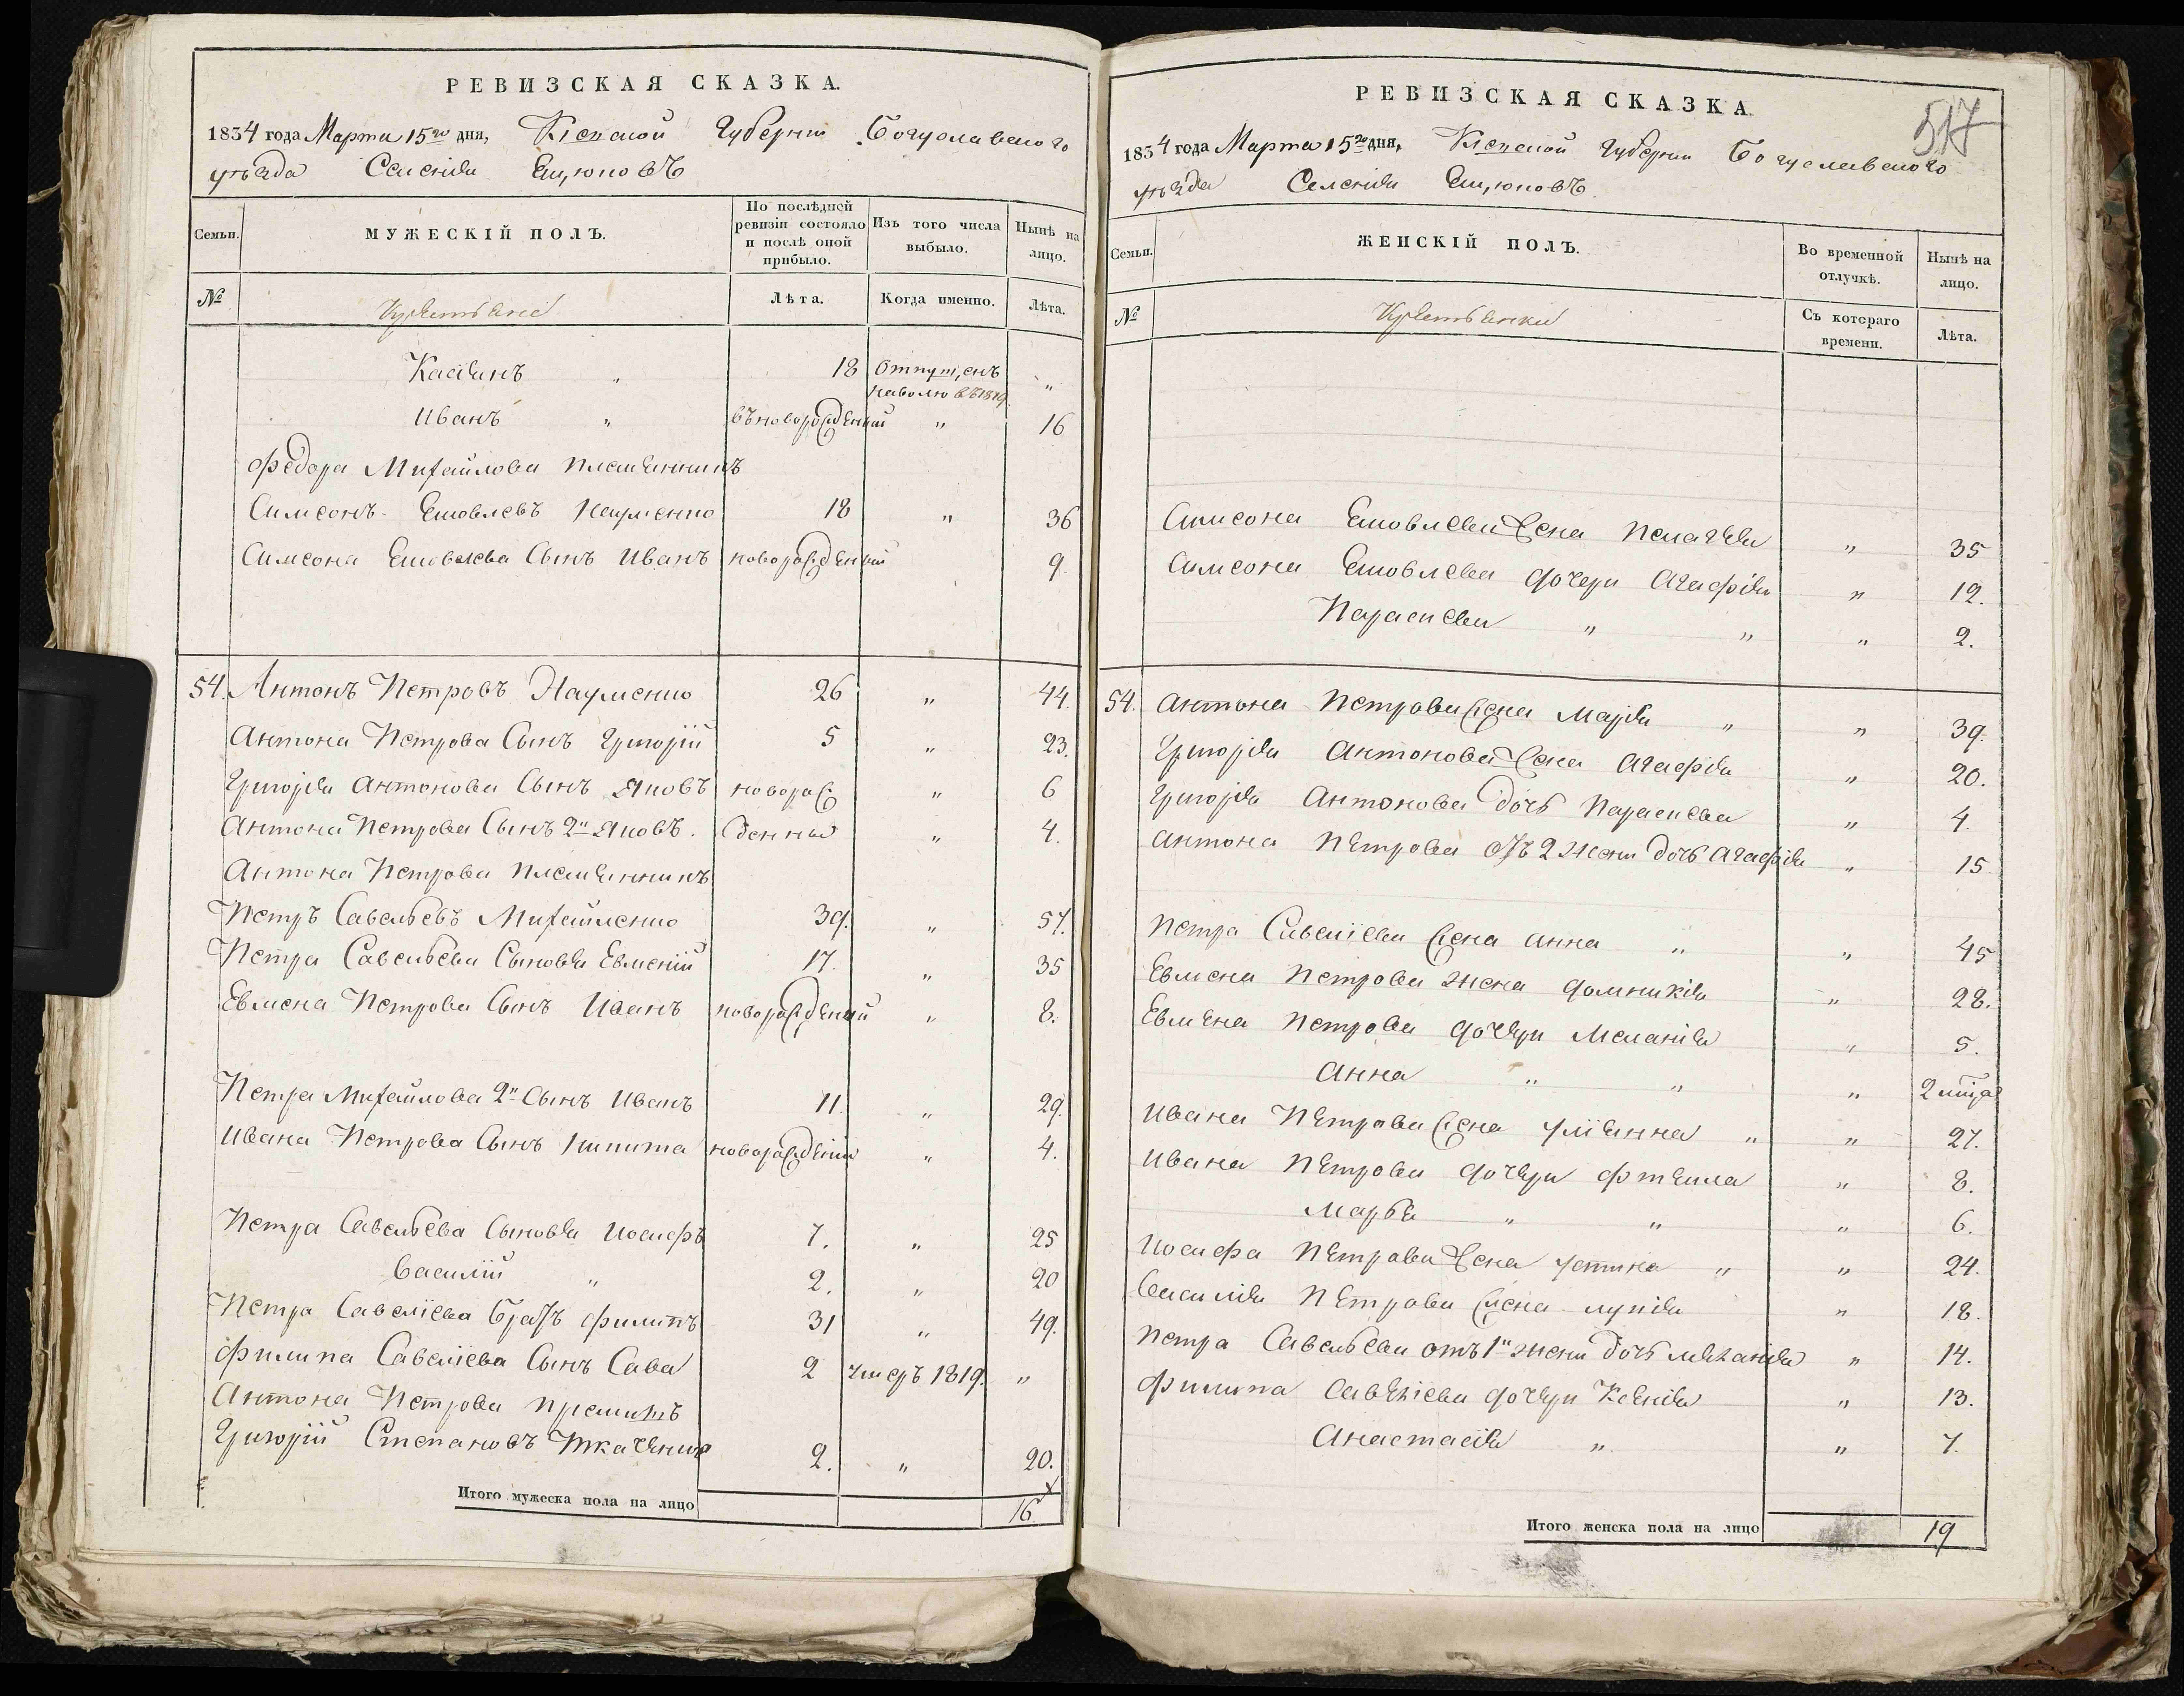 РЕВИЗСКАЯ СКАЗКА.
1834 года Марта 15го дня, Кіевской Губерніи Богуславского
уѣзда Селенія Емцюховъ
Семьи.
МУЖЕСКІЙ ПОЛЪ.
По послѣдней ревизіи состояло и послѣ оной прибыло.
Изъ того числа выбыло.
Нынѣ на лицо.
№
Крестьяне
Лѣта.
Когда именно.
Лѣта.
Касіянъ " 18 отпущенъ на волю въ 1819 "
Иванъ " въ новорожденный " 16
Федора Михайлова племянникъ
Симеонъ Яковлевъ Науменко 18 " 36
Симеона Яковлева Сынъ Иванъ новорожденный 9
54. Антонъ Петровъ Науменко 26 " 44.
Антона Петрова Сынъ Григорій 5 " 23.
Григорія Антонова Сынъ Яковъ новорож " 6
Антона Петрова Сынъ 2й Яковъ. денный " 4.
Антона Петрова племянникъ
Петръ Савельевъ Михайленко 39. " 57.
Петра Савельева Сыновья Евменій 17. " 35
Евмена Петрова Сынъ Иванъ новорожденный " 8.
Петра Михайлова 2й Сынъ Иванъ 11. " 29.
Ивана Петрова Сынъ Никита новорожденій " 4.
Петра Савельева Сыновья Иосифъ 7. " 25
Василій " 2. " 20
Петра Савеліева Братъ Филипъ 31 " 49.
Филипа Савеліева Сынъ Сава 2 умеръ 1819. "
Антона Петрова премышъ
Григорій Степановъ Ткаченко 2. " 20.
Итого мужеска пола на лицо 16
РЕВИЗСКАЯ СКАЗКА.
517
1834 года Марта 15го дня, Кіевской Губерніи Богуславского
уѣзда Селенія Емцюховъ
Семьи.
ЖЕНСКІЙ ПОЛЪ.
Во временной отлучкѣ.
Нынѣ на лицо.
№
Крестьянки
Съ котораго времени.
Лѣта.
Симеона Яковлева жена Пелагея " 35
Симеона Яковлева дочери Агафія " 12.
Параскева " " " 2.
54. Антона Петрова жена Марія " " 39.
Григорія Антонова жена Агафія " 20.
Григорія Антонова дочь Параскева " 4.
Антона Петрова отъ 2 жены дочь Агафія " 15
Петра Савеліева жена Анна " " 45
Евмена Петрова жена Домникія " 28.
Евмена Петрова дочери Меланія " 5.
Анна " " " 2 мца
Ивана Петрова жена Уліянна " " 27.
Ивана Петрова дочери Фтекла " 8.
Марья " " " 6.
Иосифа Петрова жена Устина " " 24.
Василія Петрова жена Лукія " 18.
Петра Савельева отъ 1й жены дочь Меланія " 14.
Филипа Савеліева дочери Ксенія " 13.
Анастасія " " 7.
Итого женска пола на лицо 19